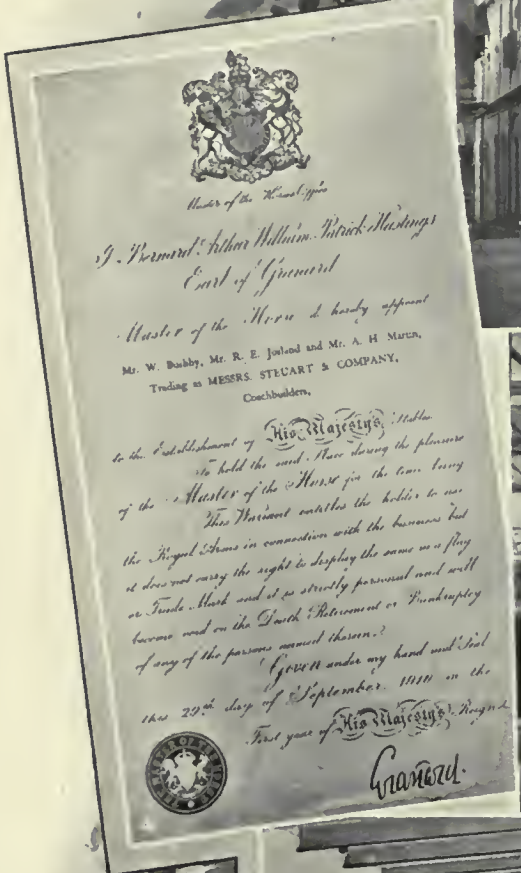 Master of the Horse's Office
I, Bernard Arthur William Patrick Hastings
Earl of Granard
Master of the Horse do hereby appoint
Mr. W. Bushby, Mr. R. E. Josland and Mr. A. H. Martin,
Trading as MESSRS. STEUART & COMPANY,
Coachbuilders,
to the Establishment of His Majesty's Stables
To hold the said Place during the pleasure
of the Master of the Horse for the time being
This Warrant entitles the holder to use
the Royal Arms in connection with the business but
it does not carry the right to display the same as a flag
or Trade Mark and it is strictly personal and will
become void on the Death Retirement or Bankruptcy
of any of the persons named therein.
Given under my hand and Seal
this 29th day of September 1910 in the
First year of His Majesty's Reign
Granard.